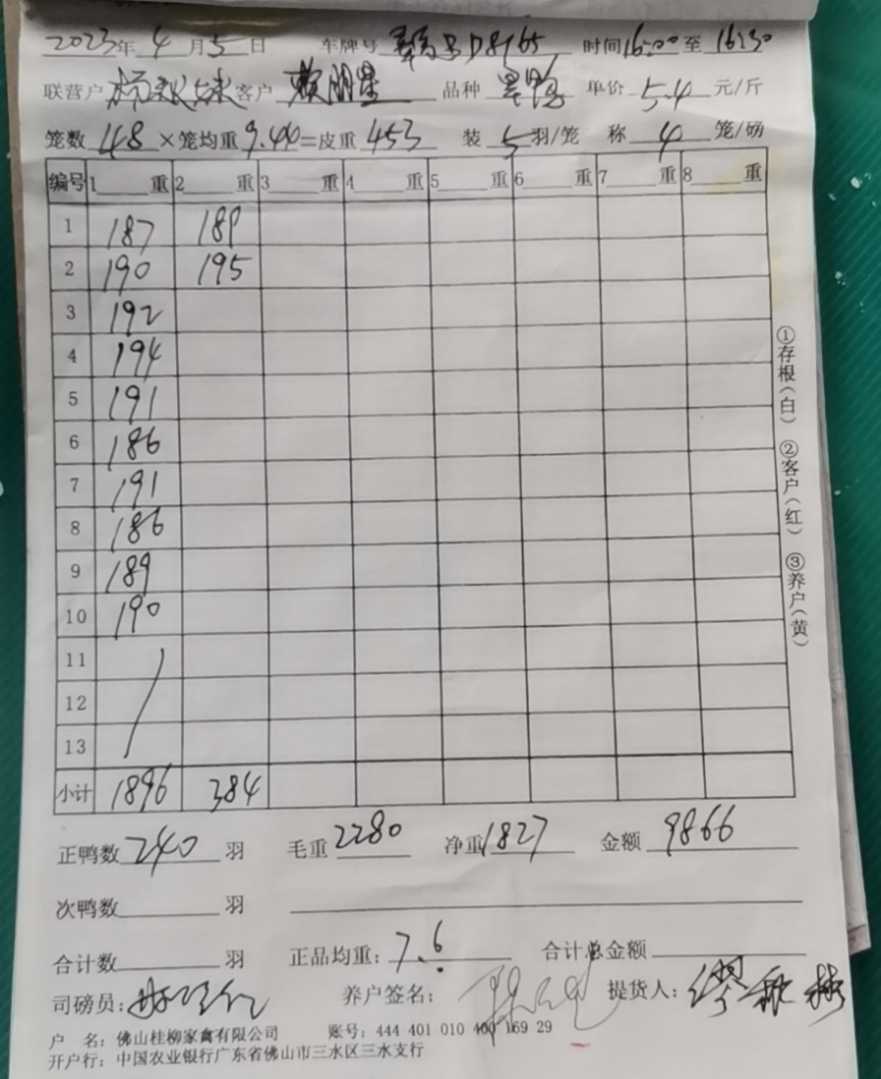 2023年4月5日 车牌号 D8765 时间16:00至16:30
联营户 杨 客户 赖朋星 品种 黑鸭 单价5.4元/斤
笼数48×笼均重9.44=皮重453 装5羽/笼 称4笼/磅
编号 1 重 2 重 3 重 4 重 5 重 6 重 7 重 8 重
1 187 189
2 190 195
3 192
4 194
5 191
6 186
7 191
8 186
9 189
10 190
11
12
13
小计 1896 384
正鸭数240羽 毛重2280 净重1827 金额9866
次鸭数 羽
合计数 羽 正品均重:7.6 合计总金额
司磅员: 养户签名: 提货人:缪
户 名:佛山桂柳家禽有限公司 账号:444 401 010 400 169 29
开户行:中国农业银行广东省佛山市三水区三水支行
①存根(白) ②客户(红) ③养户(黄)